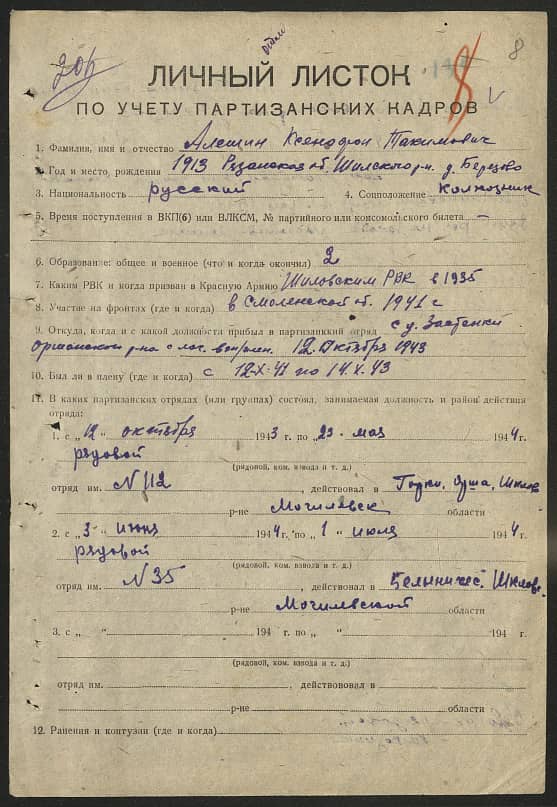 206
8
ЛИЧНЫЙ ЛИСТОК
ПО УЧЕТУ ПАРТИЗАНСКИХ КАДРОВ
1. Фамилия, имя и отчество Алешин Ксенофон Такимович
2. Год и место, рождения 1913 Рязанская об. Шиловского р-н. д. Березово
3. Национальность русский 4. Соцположение колхозник
5. Время поступления в ВКП(б) или ВЛКСМ, № партийного или комсомольского билета –
6. Образование: общее и военное (что и когда окончил) 2
7. Каким РВК и когда призван в Красную Армию Шиловским РВК в 1935
8. Участие на фронтах (где и когда) в Смоленской об. 1941 г
9. Откуда, когда и с какой должности прибыл в партизанский отряд с д. Застенки
Оршанского р-на с лаг. 12 Октября 1943
10. Был ли в плену (где и когда) с 12-X-41 по 14.X.43
11. В каких партизанских отрядах (или группах) состоял, занимаемая должность и район действия
отряда:
1. с „12" октября 1943 г. по „23" мая 1944 г.
рядовой
(рядовой, ком. взвода и т. д.)
отряд им. N 112, действовал в Горки, Орша, Шклов
р-не Могилевск области
2. с „3" июня 1944 г. по „1" июля 1944 г.
рядовой
(рядовой, ком. взвода и т. д.)
отряд им. N 35, действовал в Белыничес. Шклов.
р-не Могилевской области
3. с „ " 194 г. по „ " 194 г.
(рядовой, ком. взвода и т. д.)
отряд им. , действовал в
р-не области
12. Ранения и контузии (где и когда)